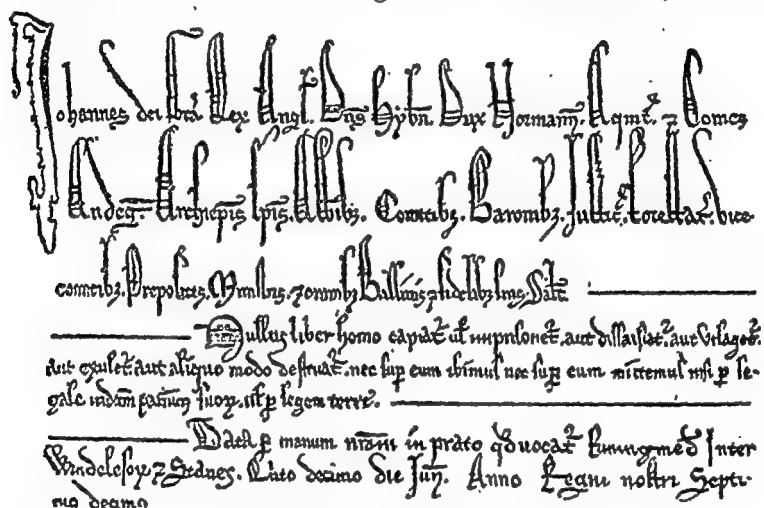 Johannes dei gra Rex Angl. Dns Hybn. Dux Normann. Aqnit. ⁊ Comes
Andeg. Archiepis. Epis. Abbibz. Comitibz. Baronibz. Justic. forestar. vice-
comitibz. Prepositis. Ministris. ⁊ omnibz Ballivis ⁊ fidelibz suis. Salt
Nullus liber homo capiat. ul imprisonet. aut dissaisiat. aut utlaget.
aut exulet. aut aliquo modo destruat. nec sup eum ibimus nec sup eum mittemus nisi p le-
gale iudm parium suoꝝ. ul p legem terre.
Data p manum nram in prato qd vocat Runingmed Inter
Windelesoꝝ ⁊ Stanes. Quito decimo die Jun. Anno Regni nostri Septi-
mo decimo